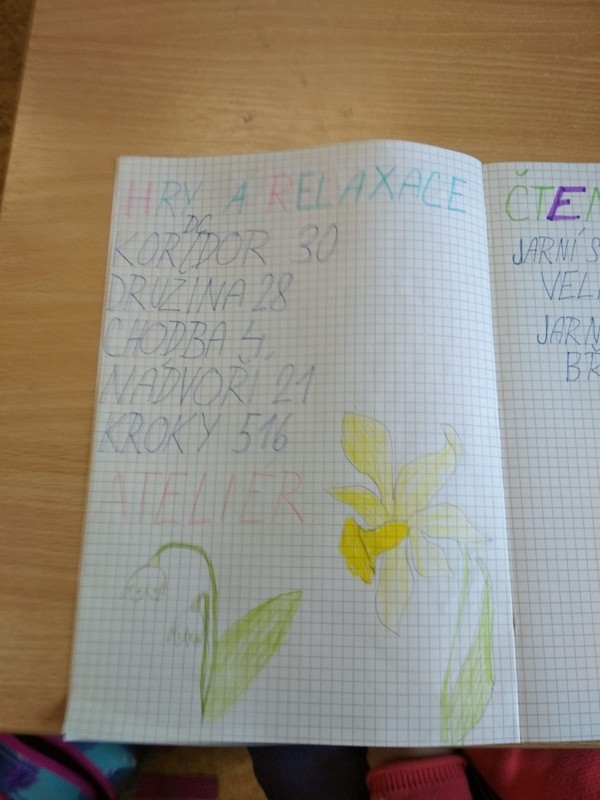 HRY A RELAXACE
KORIDOR 30
DRUŽINA 28
CHODBA 4.
NÁDVOŘÍ 21
KROKY 516
ATELIER
ČTEN
JARNÍ S
VEL
JARN
BŘ